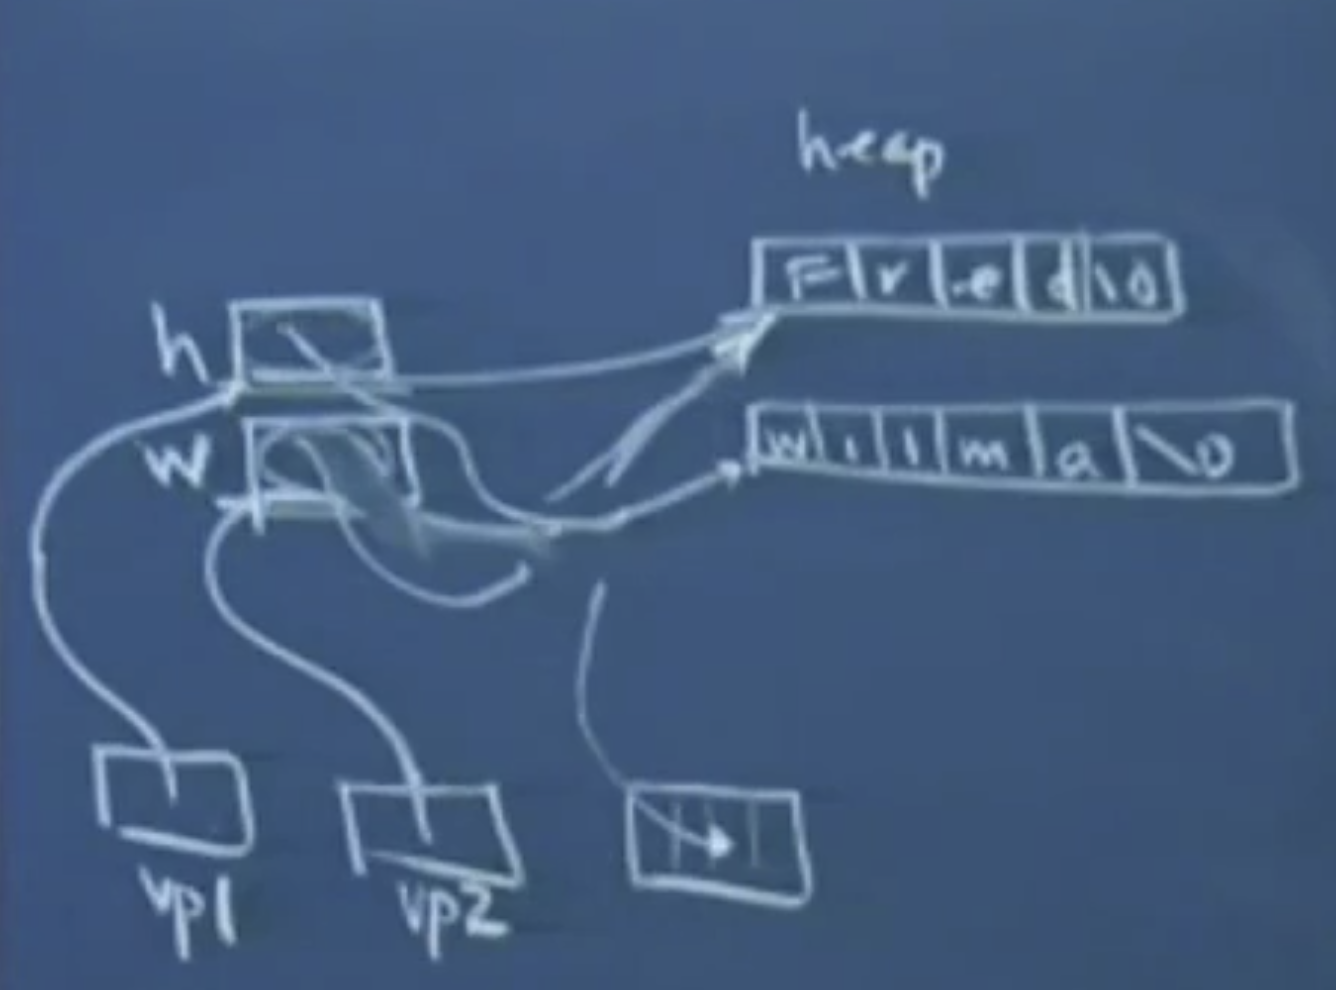 heap
F r e d \0
h
w
w i l m a \0
vp1
vp2